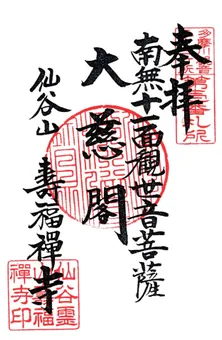 奉拝
南無十一面觀世音菩薩
大慈閣
仙谷山
壽福禪寺
仙谷靈
山壽福
禪寺印